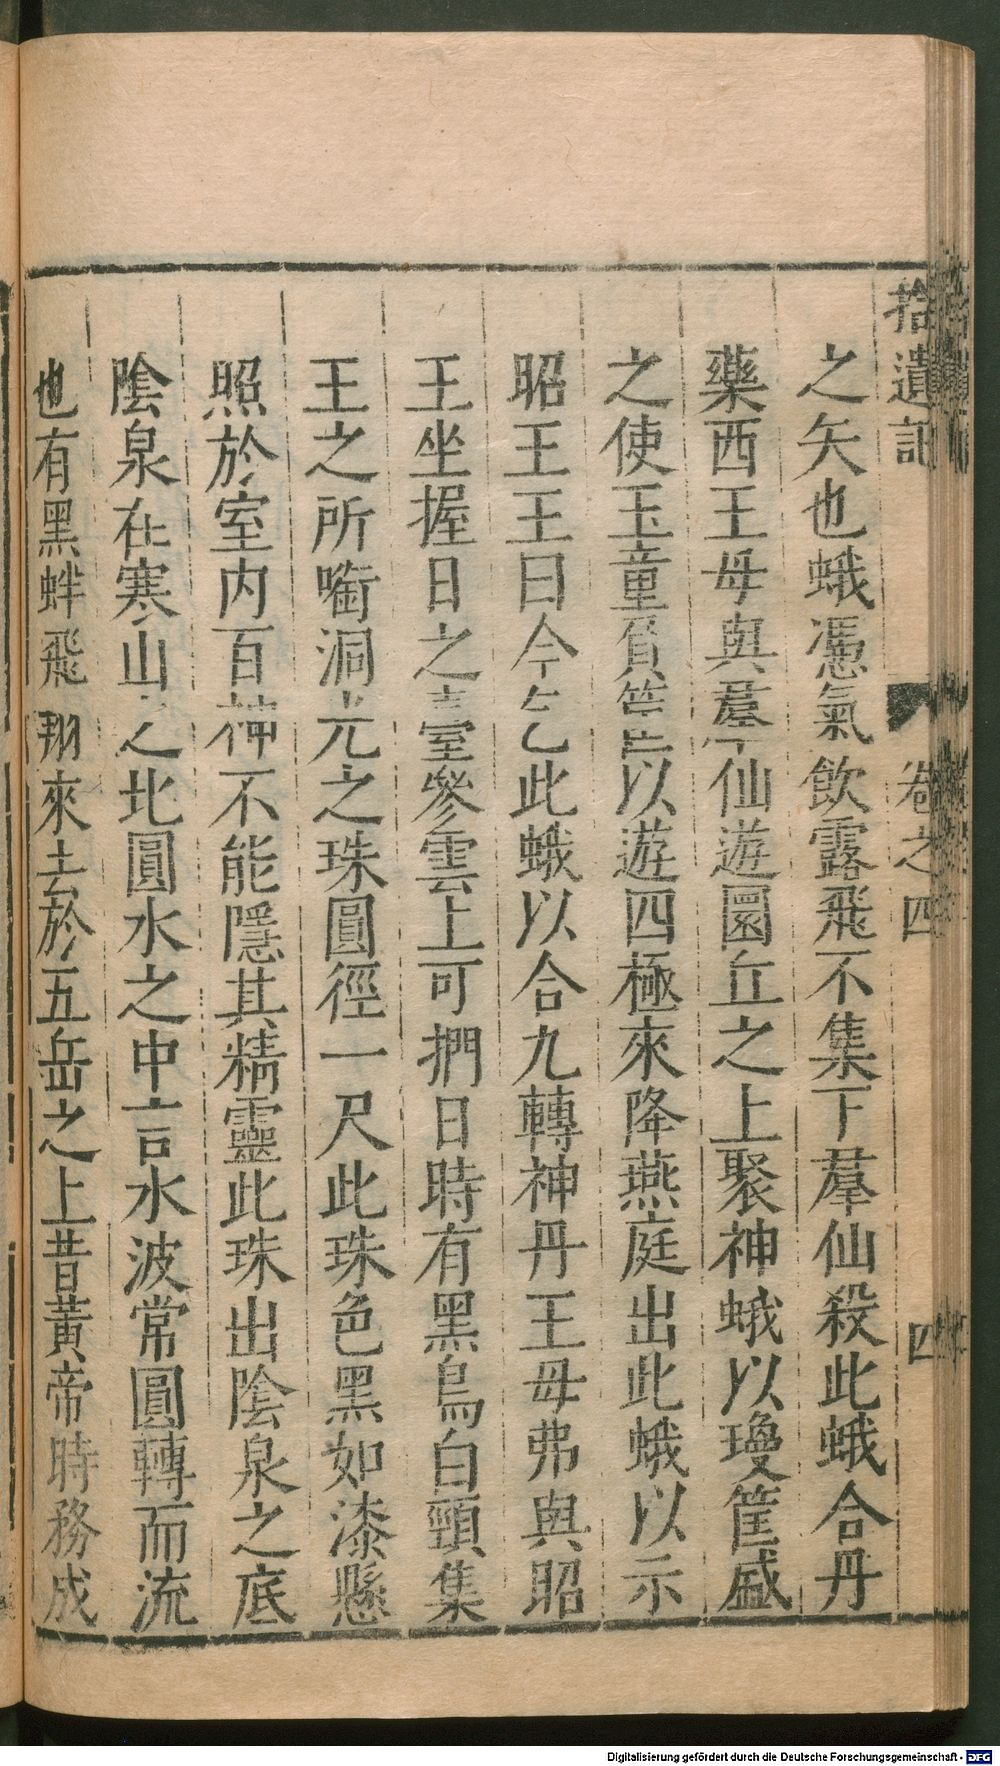 拾遺記
卷之四
四
之矢也蛾憑氣飲露飛不集下羣仙殺此蛾合丹
藥西王母與羣仙遊圜丘之上聚神蛾以瓊筐盛
之使玉童負筐以遊四極來降燕庭出此蛾以示
昭王王曰今乞此蛾以合九轉神丹王母弗與昭
王坐握日之臺參雲上可捫日時有黑鳥白頸集
王之所啣洞光之珠圓徑一尺此珠色黑如漆懸
照於室内百神不能隱其精靈此珠出陰泉之底
陰泉在寒山之北圓水之中言水波常圓轉而流
也有黑蚌飛翔來去於五岳之上昔黃帝時務成
Digitalisierung gefördert durch die Deutsche Forschungsgemeinschaft - DFG